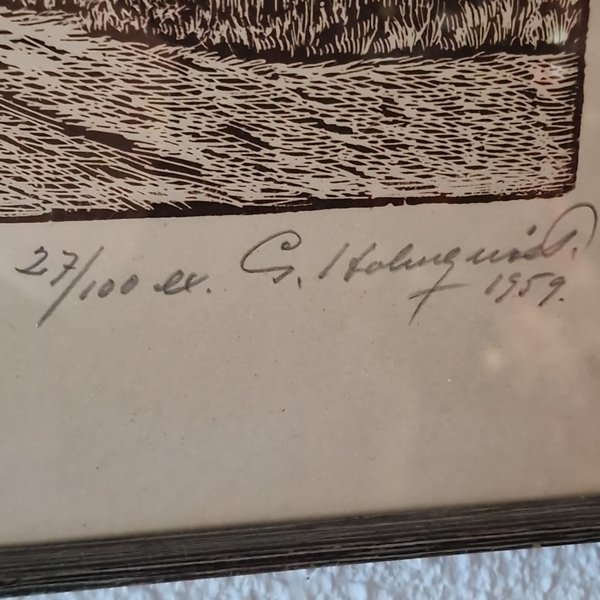 27/100 ex. G. Holmquist.
1959.